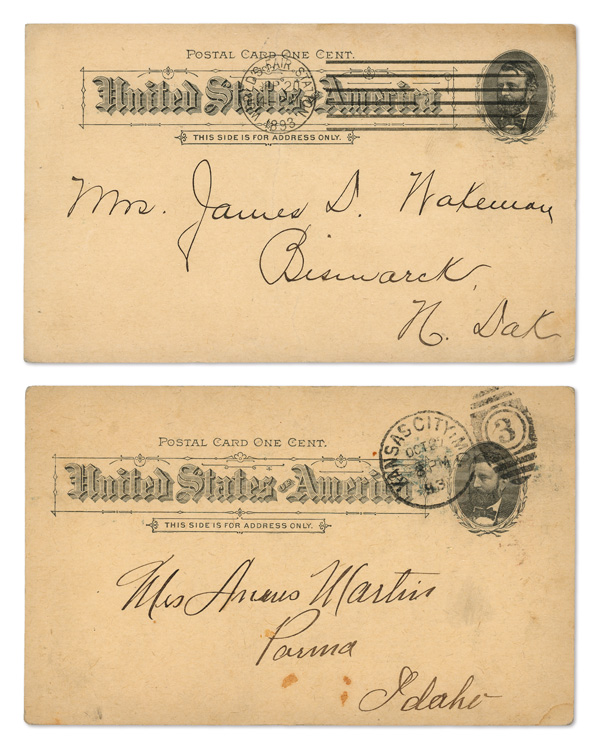 POSTAL CARD ONE CENT.
United States of America
WORLD'S FAIR STATION
SEP 20
1893
THIS SIDE IS FOR ADDRESS ONLY.
Mrs. James D. Wakeman
Bismarck
N. Dak
KANSAS CITY, MO.
OCT 27
PM
93
3
POSTAL CARD ONE CENT.
United States of America
THIS SIDE IS FOR ADDRESS ONLY.
Mrs Martin
Parma
Idaho